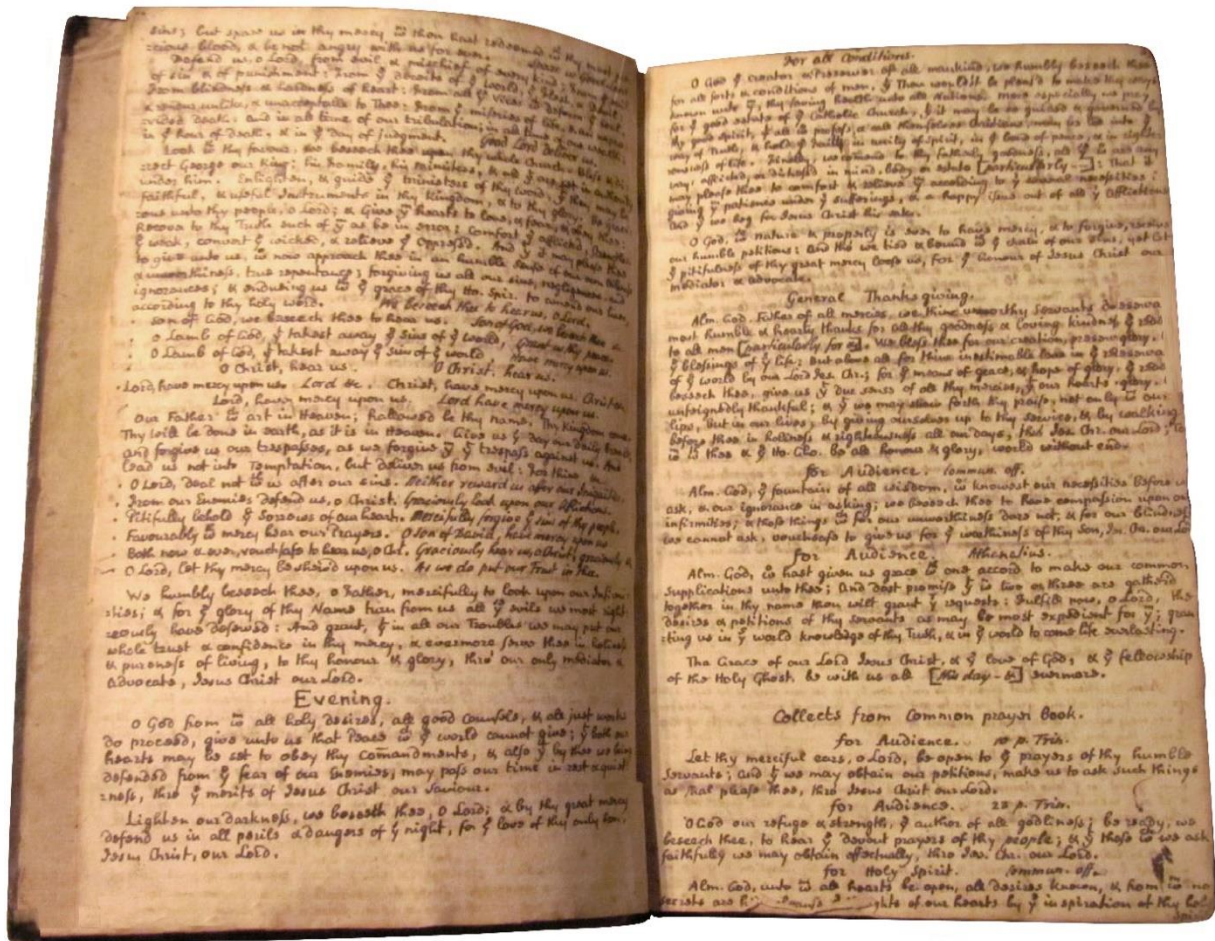 sins; but spare us in thy mercy wc thou hast redeemed wth thy most pre-
-cious blood, & be not angry with us for ever. Spare us Good Lord
Defend us, o Lord, from evil & mischief of every kind; from ye guilt
of sin & of punishment: From ye deceits of ye World, ye flesh, & Devil
From blindness & hardness of heart: From all ye vices yt deform ye soul,
& render unlike, & unacceptable to Thee: From ye miseries of life, & an unpro-
vided death. And in all time of our tribulation; in all time of our wealth
in ye hour of death, & in ye Day of judgment. Good Lord deliver us.
Look in thy favour, we beseech thee upon thy whole Church: Bless & di-
rect George our King; his family, his ministers, & all yt are put in authority
under him. Enlighten, & guide ye ministers of thy word, yt they may be
faithful, & useful Instruments in thy Kingdom, & to thy glory. Be graci-
ous unto thy people, o Lord; & Give ym hearts to love, & fear, & obey thee:
Recover to thy Truth such of ym as be in error; Comfort ye afflicted, strengthen
ye weak, convert ye wicked, & relieve ye Oppressed. And yt it may please thee
to give unto us, wc now approach thee in an humble sense of our own vileness
& unworthiness, true repentance; forgiving us all our sins, negligences and
ignorances; & enduing us wth ye grace of thy Ho. Spir. to amend our lives,
according to thy holy word. We beseech thee to hear us, o Lord.
Son of God, we beseech thee to hear us. Son of God, we beseech thee &c
o Lamb of God, yt takest away ye Sins of ye world, Grant us thy peace.
o Lamb of God, yt takest away ye Sins of ye world, have mercy upon us.
o Christ, hear us. o Christ, hear us.
Lord, have mercy upon us. Lord &c. Christ, have mercy upon us. Christ &c.
Lord, have mercy upon us. Lord have mercy upon us.
Our Father wc art in Heaven; Hallowed be thy Name. Thy Kingdom come.
Thy will be done in earth, as it is in Heaven. Give us ys day our daily bread,
and forgive us our trespasses, as we forgive ym yt trespass against us. And
lead us not into Temptation, but deliver us from evil: For thine is
O Lord, deal not wth us after our sins. Neither reward us after our Iniquities.
From our Enemies defend us, o Christ. Graciously look upon our afflictions.
Pitifully behold ye Sorrows of our heart. Mercifully forgive ye sins of thy people.
Favourably wth mercy hear our Prayers. O Son of David, have mercy upon us
Both now & ever, vouchsafe to hear us, o Chr. Graciously hear us, o Christ; graciously &c
O Lord, let thy mercy be shewed upon us. As we do put our Trust in thee.
We humbly beseech thee, o Father, mercifully to look upon our Infirm-
ities; & for ye glory of thy Name turn from us all ye evils we most right-
eously have deserved: And grant, yt in all our Troubles we may put our
whole trust & confidence in thy mercy, & evermore serve thee in holiness
& pureness of living, to thy honour & glory, thro' our only mediator &
advocate, Jesus Christ our Lord.
Evening.
O God from wm all holy desires, all good counsels, & all just works
do proceed, give unto us that Peace wc ye world cannot give; yt both our
hearts may be set to obey thy com̄andments, & also yt by thee we being
defended from ye fear of our Enemies, may pass our time in rest & quiet
-ness, thro ye merits of Jesus Christ our Saviour.
Lighten our darkness, we beseech thee, o Lord; & by thy great mercy
defend us in all perils & dangers of ys night, for ye love of thy only Son,
Jesus Christ, our Lord.
For all Conditions.
O God ye creator & Preserver of all mankind, we humbly beseech thee
for all sorts & conditions of men, yt Thou wouldst be pleas'd to make thy ways
known unto ym, thy saving health unto all Nations. more especially we pray
for ye good estate of ye Catholic Church, yt it may be so guided & governed by
thy good spirit, yt all yt profess & call themselves christians, may be led into ye
way of Truth, & hold ye Faith in unity of spirit, in ye bond of peace, & in righte-
ousness of life. Finally, we commend to thy fatherly goodness, all yt are any
ways afflicted, or distressed in mind, body or estate [particularly —]: That it
may please thee to comfort & relieve ym according to yr several necessities;
giving ym patience under yr sufferings, & a happy issue out of all yr afflictions
And ys we beg for Jesus Christ his sake.
O God, ws nature & property is ever to have mercy, & to forgive, receive
our humble petitions: And tho' we be tied & bound wth ye chain of our sins, yet let
ye pitifulness of thy great mercy loose us, for ye honour of Jesus Christ our
mediator & advocate.
General Thanksgiving.
Alm. God, Father of all mercies, we thine unworthy Servants do give ye
most humble & hearty thanks for all thy goodness & loving kindness to us &
to all men [particularly for &]. We bless thee for our creation, preserv. &
ye blessings of ys life; But above all for thine inestimable love in ye redemp.
of ye world by our Lord Jes. Chr.; for ye means of grace, & hope of glory. & we
beseech thee, give us yt due sense of all thy mercies, yt our hearts may be
unfeignedly thankful; & yt we may shew forth thy praise, not only wth our
lips, but in our lives; by giving ourselves up to thy service, & by walking
before thee in holiness & righteousness all our days, thro Jes. Chr. our Lord; to
wm wth thee & ye Ho. Gho. be all honour & glory, world without end.
for Audience. Commun. off.
Alm. God, ye fountain of all wisdom, wc knowest our necessities before we
ask, & our ignorance in asking; we beseech thee to have compassion upon our
infirmities; & those things wc for our unworthiness dare not, & for our blindness
we cannot ask, vouchsafe to give us for ye worthiness of thy Son, Jes. Chr. our Lord
for Audience. Athenasius.
Alm. God, wc hast given us grace wth one accord to make our common
Supplications unto thee; And dost promise yt wn two or three are gathered
together in thy name thou wilt grant yr requests: Fulfill now, o Lord, the
desires & petitions of thy servants as may be most expedient for ym; gran
ting us in ys world knowledge of thy Truth, & in ye world to come life everlasting.
The Grace of our Lord Jesus Christ, & ye love of God, & ye fellowship
of the Holy Ghost, be with us all [this day - &] evermore.
Collects from Common prayer Book.
for Audience. 10 p. Trin.
Let thy merciful ears, o Lord, be open to ye prayers of thy humble
Servants; And yt we may obtain our petitions, make us to ask such things
as shal please thee, thro Jesus Christ our Lord.
for Audience. 23 p. Trin.
O God our refuge & strength, ye author of all godliness; be ready, we
beseech thee, to hear ye devout prayers of thy people; & yt those wc we ask
faithfully we may obtain effectually, thro Jes. Chr. our Lord.
for Holy Spirit. Commun. off.
Alm. God, unto wm all hearts be open, all desires known, & from wm no
secrets are hid of our hearts by ye inspiration of thy hol